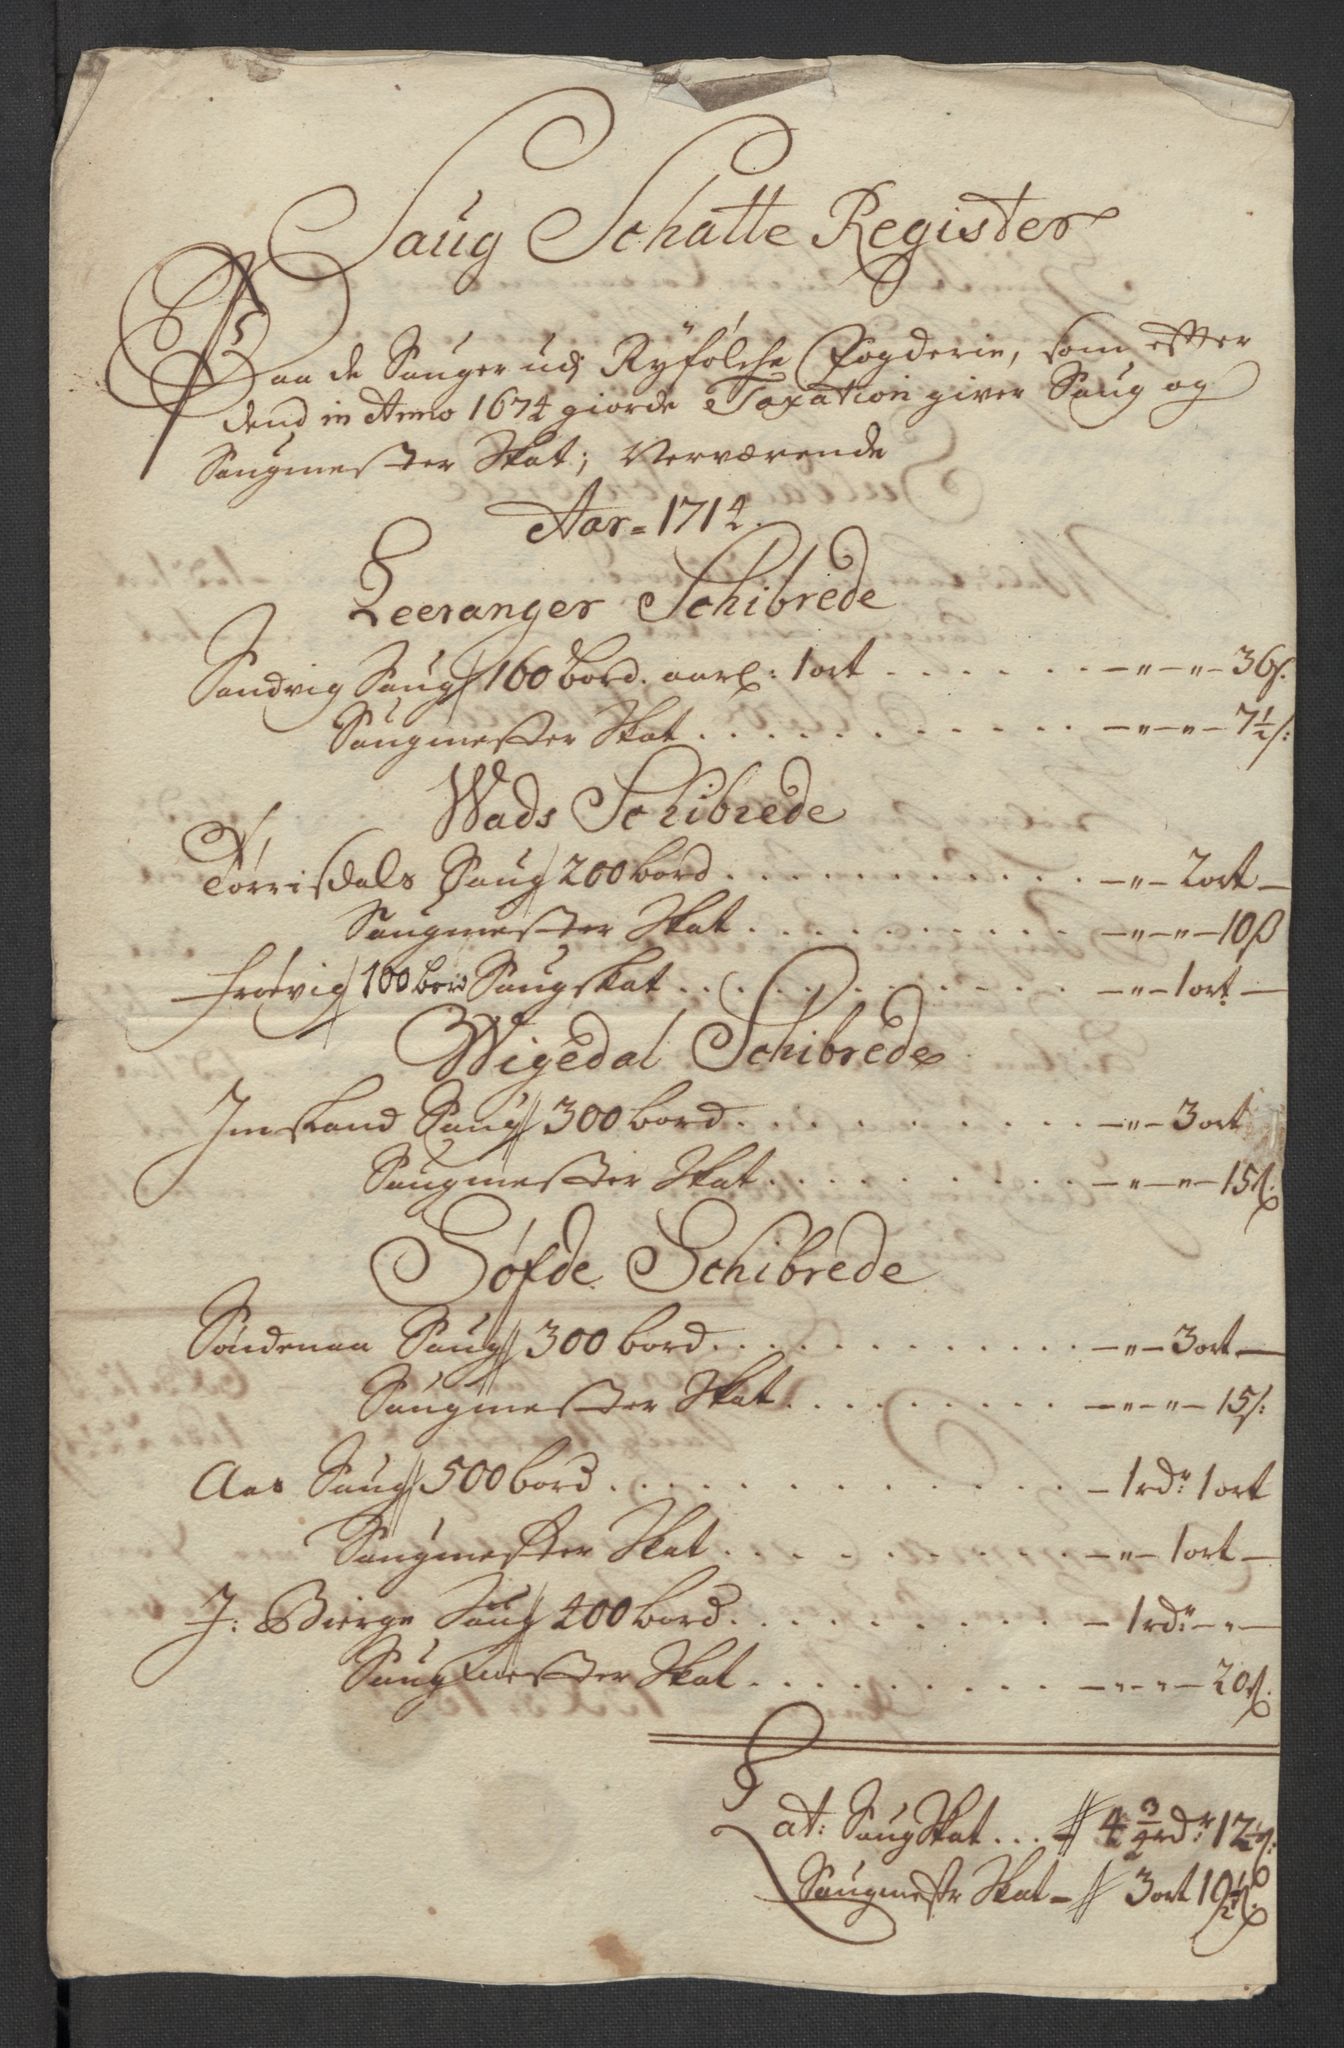 Saug Schatte Register
Paa de Sauger udj Ryfølche Fogderie, som efter
dend in Anno 1674 giorde Taxation giver Saug og
Saugmester Skat; Nerværende
Aar = 1714.
Leeranger Schibrede
Sandvig Saug 160 bord. aarl: 1 ort . . . . . . — " — " — 36 s.
Saugmester Skat . . . . . . . . . . . — " — " — 7 1/2 s:
Wads Schibrede
Torrisdals Saug 200 bord . . . . . . . . . . . — " — 2 ort —
Saugmester Skat . . . . . . . . . . — " — " — 10 ß
Frøevig 100 bord Saugskat . . . . . . . . . . — " — 1 ort —
Wigedal Schibrede
Imsland Saug 300 bord . . . . . . . . . . — " — 3 ort
Saugmester Skat . . . . . . . . . — " — " — 15 s.
Søfde Schibrede
Søndenaa Saug 300 bord . . . . . . . . . . . — " — 3 ort —
Saugmester Skat . . . . . . . . . — " — " — 15 s:
Aas Saug 500 bord . . . . . . . . . . . . — 1 rdr: 1 ort
Saugmester Skat . . . . . . . . . . — " — 1 ort —
J: Bierge Saug 400 bord . . . . . . . . . — 1 rdr: — " —
Saugmester Skat . . . . . . . . . — " — " — 20 s.
Lat: Saug Skat . . . — 4 3/4 rdr: 12
Saugmestr Skat — 3 ort 19 1/2 s.